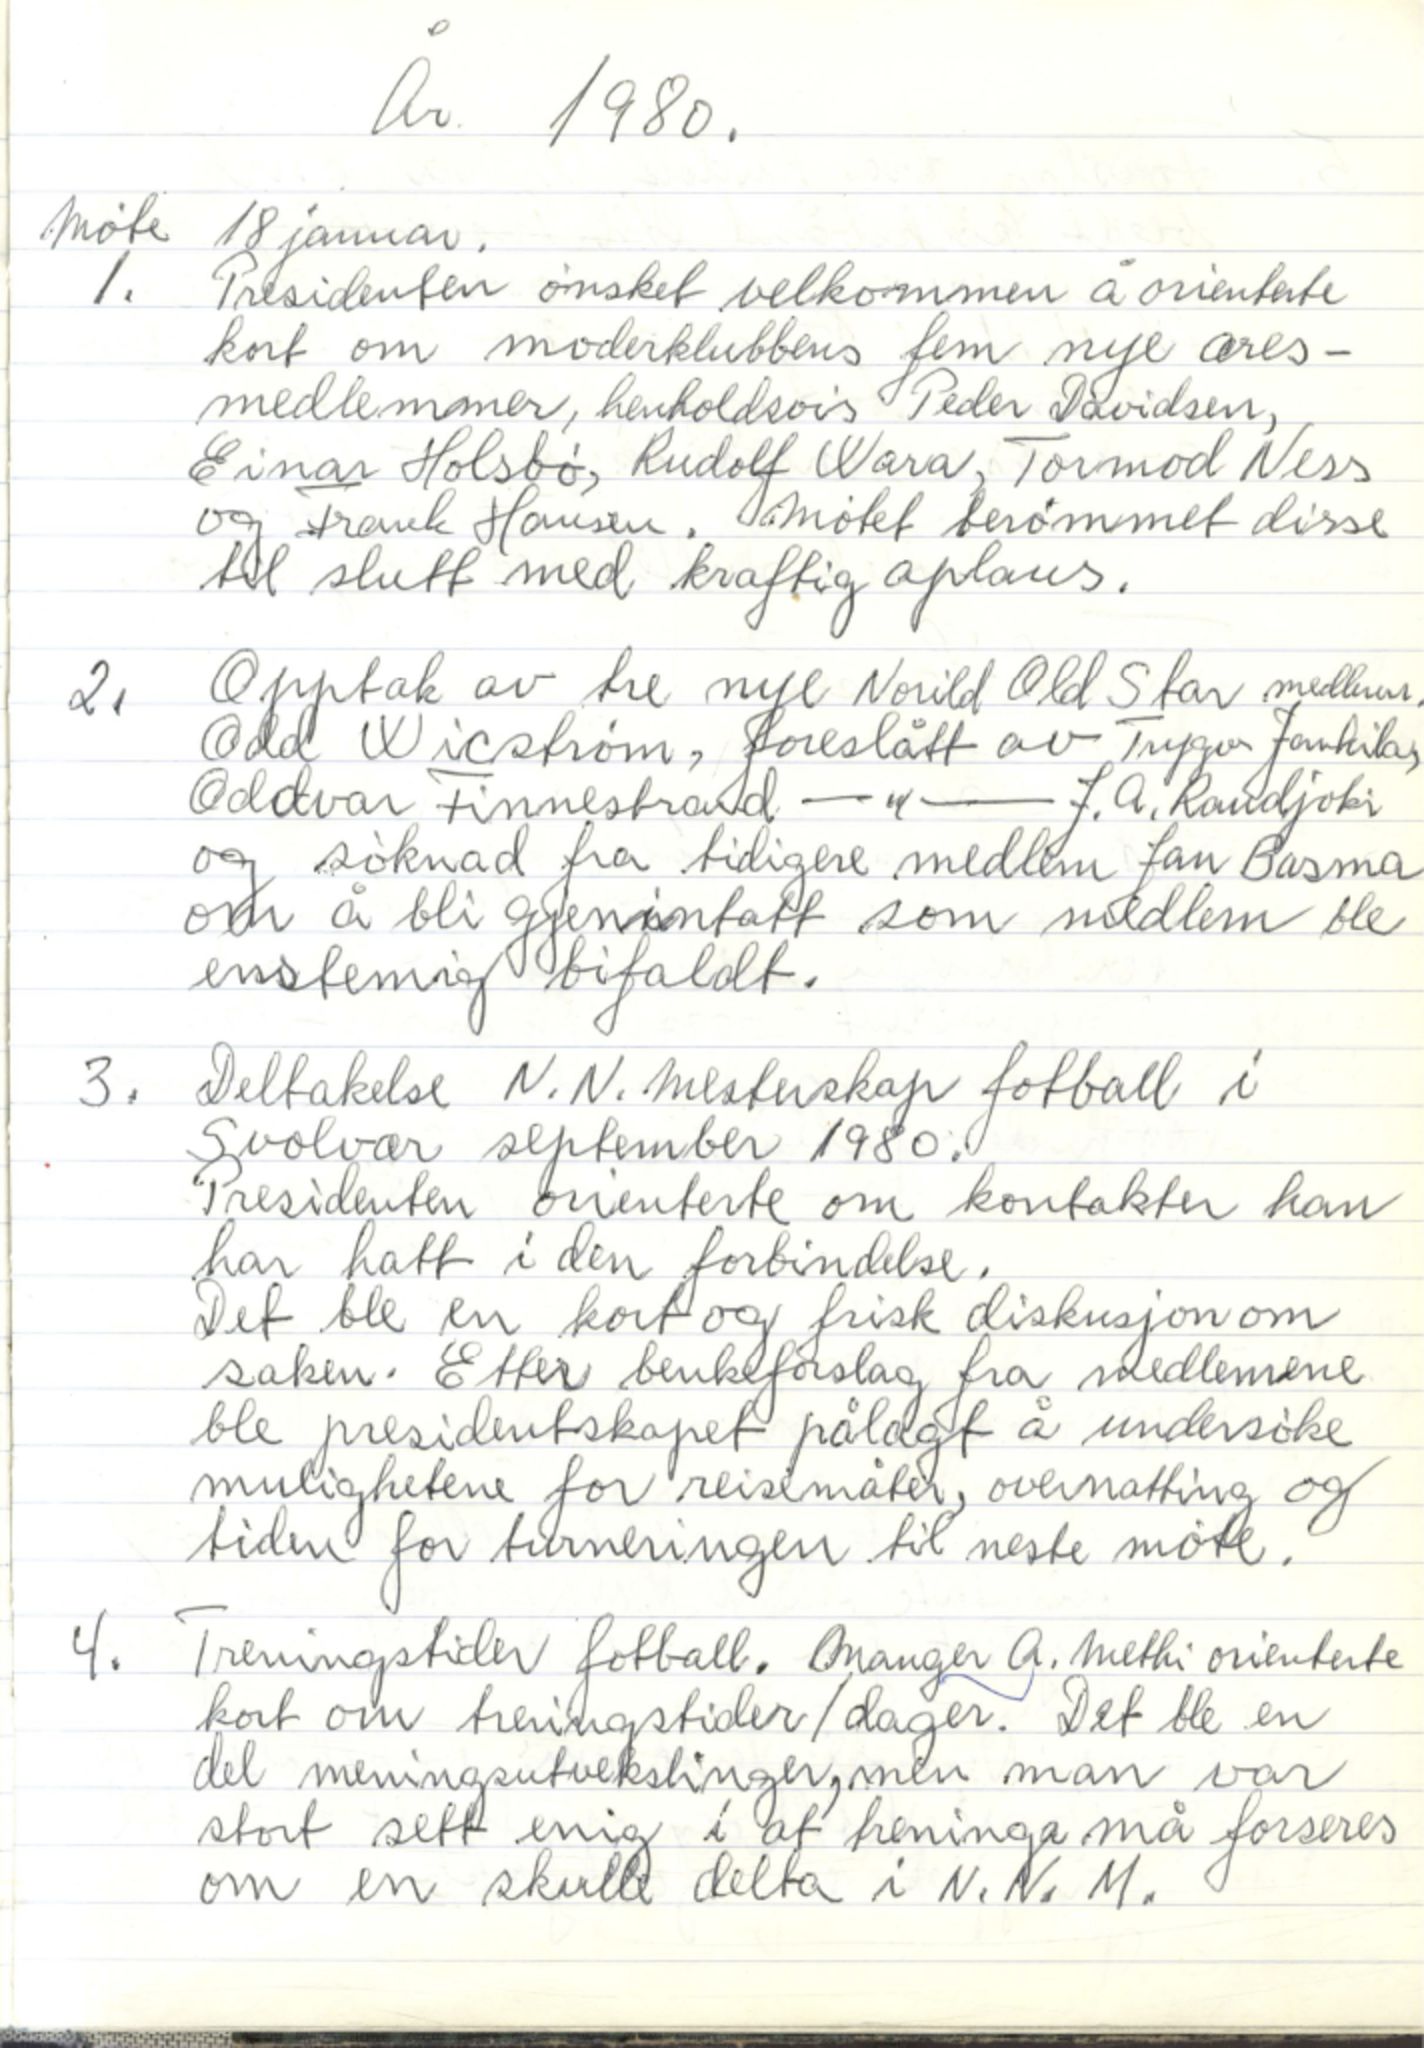 År 1980.
Møte 18 januar.
1. Presidenten ønsket velkommen å orienterte
kort om moderklubbens fem nye æres-
medlemmer, henholdsvis Peder Davidsen,
Einar Holsbø, Rudolf Wara, Tormod Ness
og Frank Hansen. Møtet berømmet disse
til slutt med kraftig aplaus.
2. Opptak av tre nye Norild Old Star medlemr.
Odd Wicstrøm, foreslått av Trygve
Oddvar Finnestrand —"— J. A. Raudjoki
og søknad fra tidigere medlem Jan Basma
om å bli gjeninntatt som medlem ble
enstemig bifaldt.
3. Deltakelse N.N. Mesterskap fotball i
Svolvær september 1980.
Presidenten orienterte om kontakter han
har hatt i den forbindelse.
Det ble en kort og frisk diskusjon om
saken. Etter benkeforslag fra medlemene
ble presidentskapet pålagt å undersøke
mulighetene for reisemåter, overnatting og
tiden for turneringen til neste møte.
4. Treningstider fotball. Manger A. Methi orienterte
kort om treningstider/dager. Det ble en
del meningsutvekslinger, men man var
stort sett enig i at treninga må forseres
om en skulle delta i N.N.M.